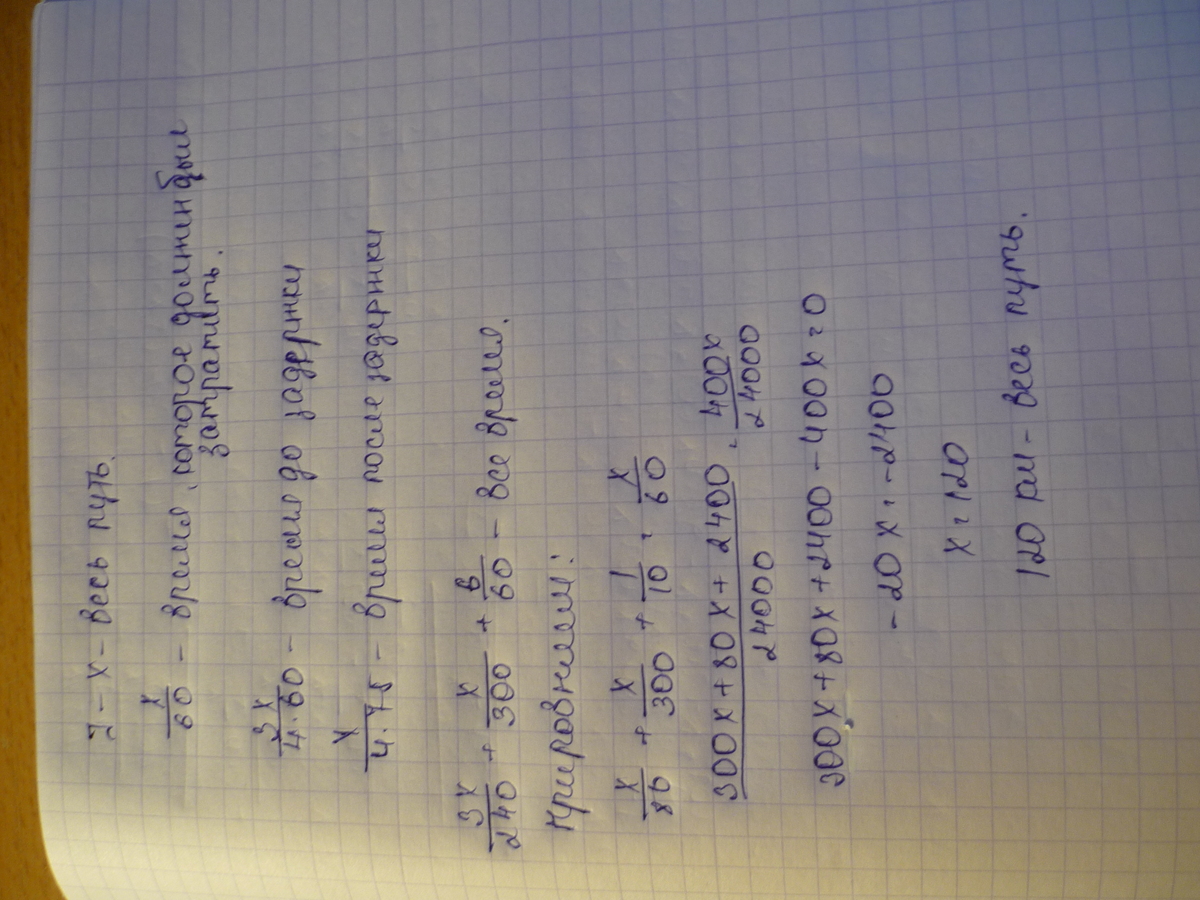 7 - x - весь путь.
x/60 - время, которое должен был
затратить.
3x/4·60 - время до задержки
x/4·75 - время после задержки
3x/240 + x/300 + 6/60 - все время.
Приравняем:
x/80 + x/300 + 1/10 = x/60
300x+80x+2400/24000 = 400x/24000
300x+80x+2400-400x=0
-20x=-2400
x=120
120 км - весь путь.